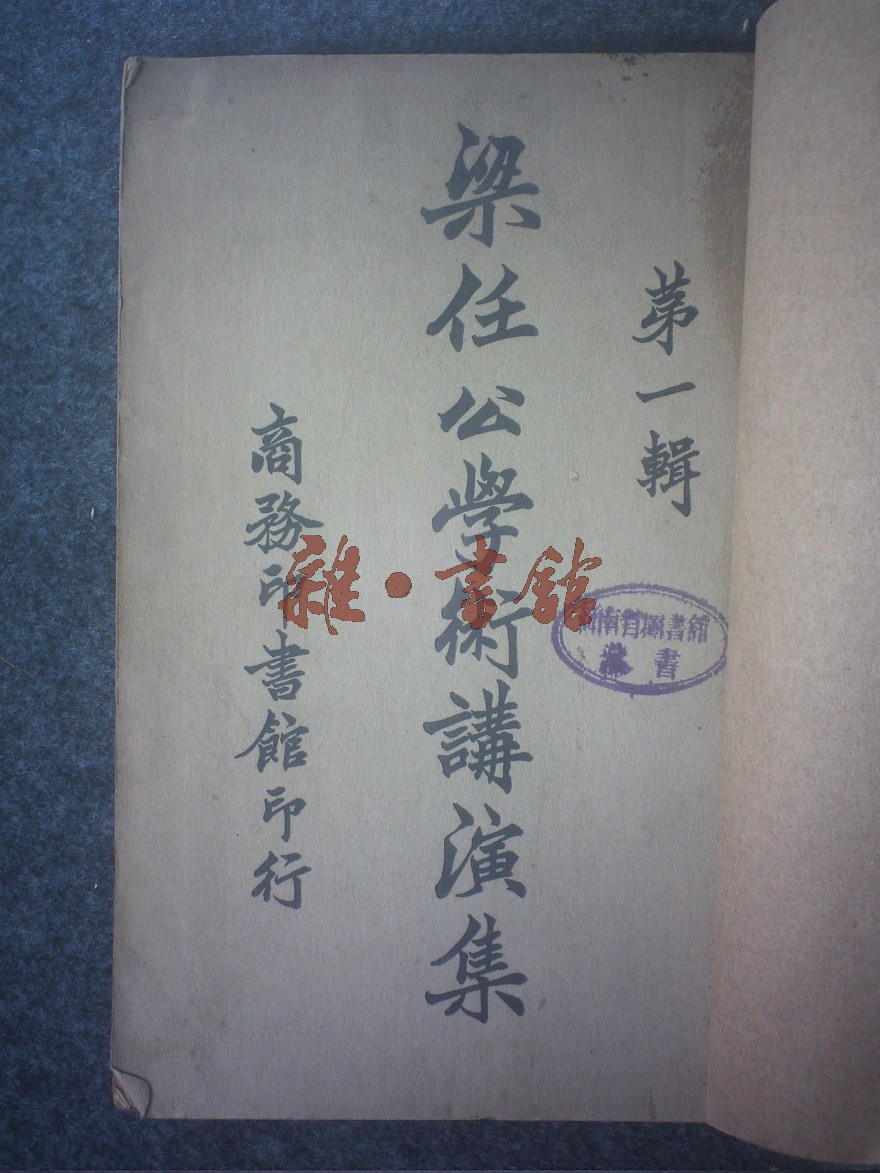 第一輯
梁任公學術講演集
商務印書館印行
雜·書館
南省圖書館
藏書